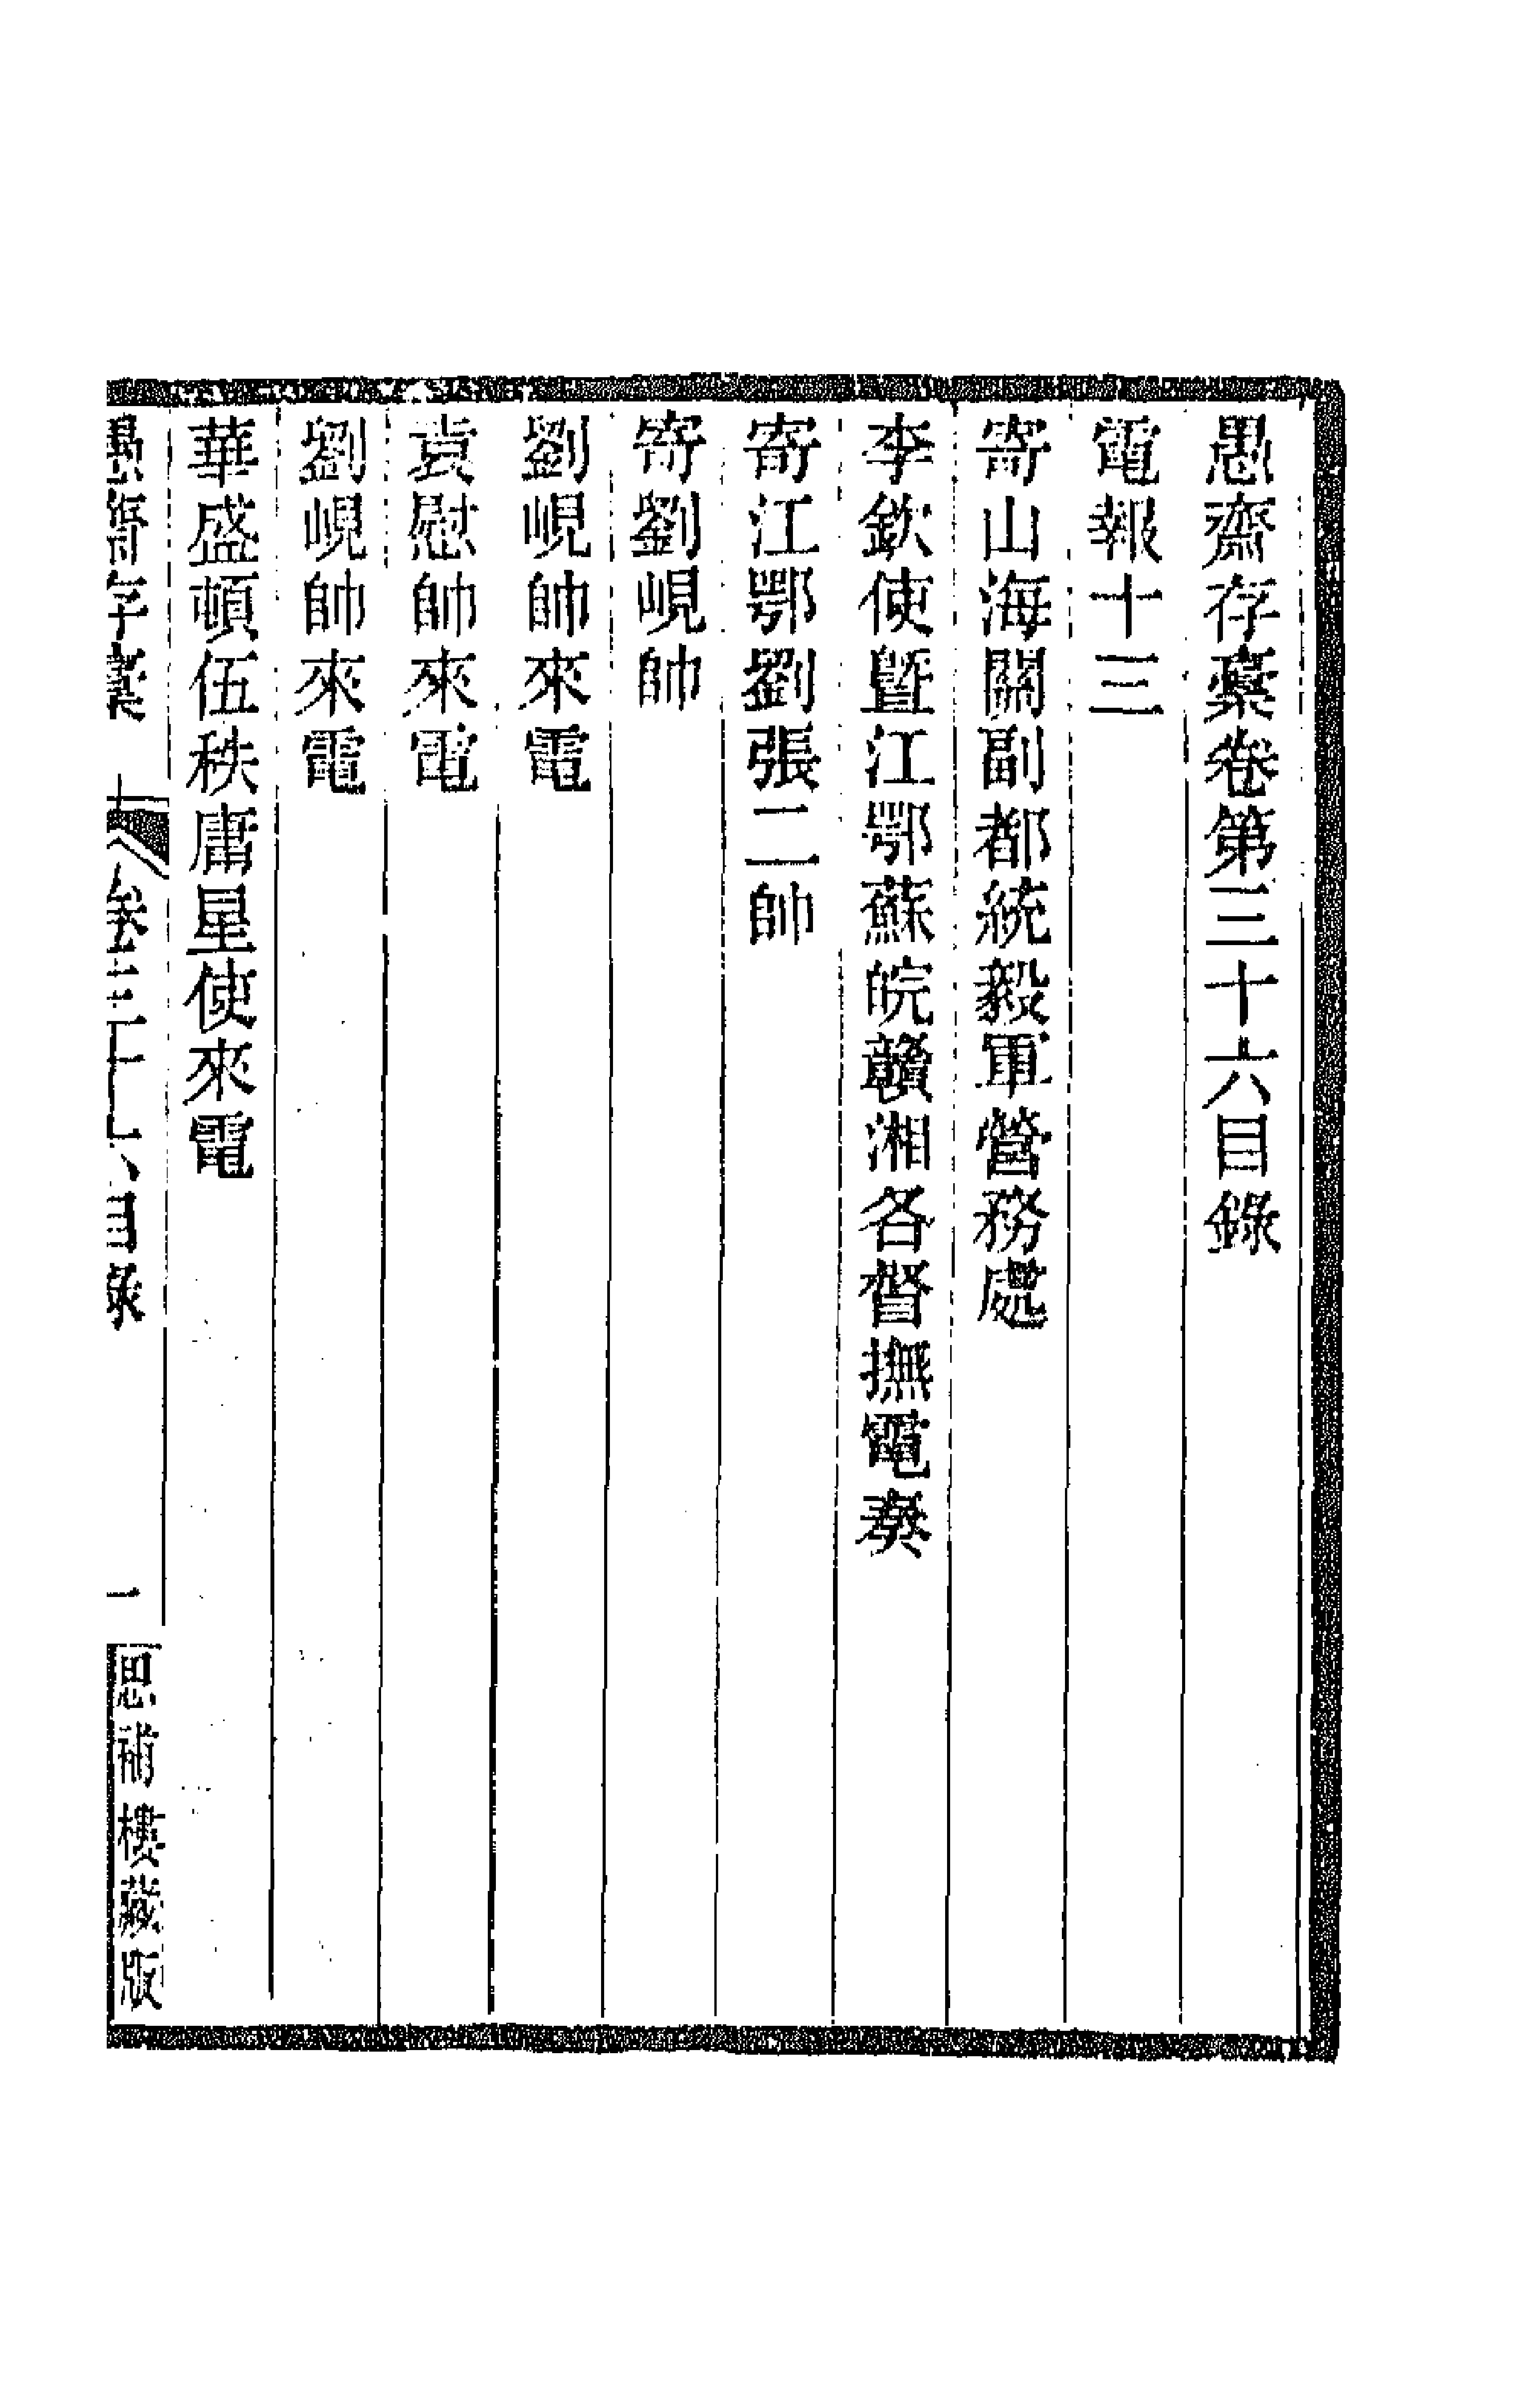 愚齋存藁卷第三十六目錄
電報十三
寄山海關副都統毅軍營務處
李欽使曁江鄂蘇皖贛湘各督撫電奏
寄江鄂劉張二帥
寄劉峴帥
劉峴帥來電
袁慰帥來電
劉峴帥來電
華盛頓伍秩庸星使來電
愚齋存藁
卷三十六目錄
一
思補樓藏版